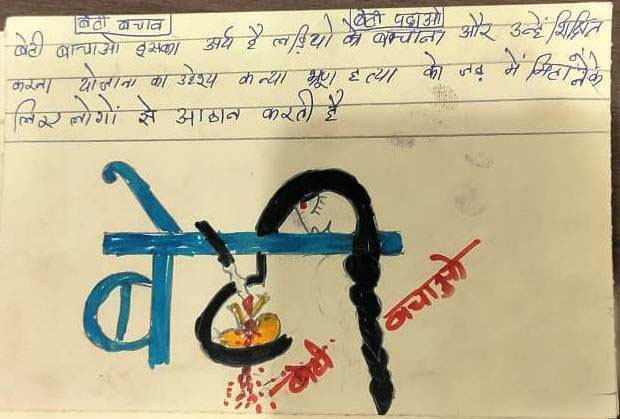 बेटी बचाव बेटी पढ़ाओ
बेटी बाचाओ इसका अर्थ है लड़ियो के बच्चाना और उन्हें शिक्षित
करना योजाना का उद्देश्य कन्या भ्रूण हत्या को जड़ में मिटाने के
लिए लोगों से आहान करती है
बेटी
बचाओ